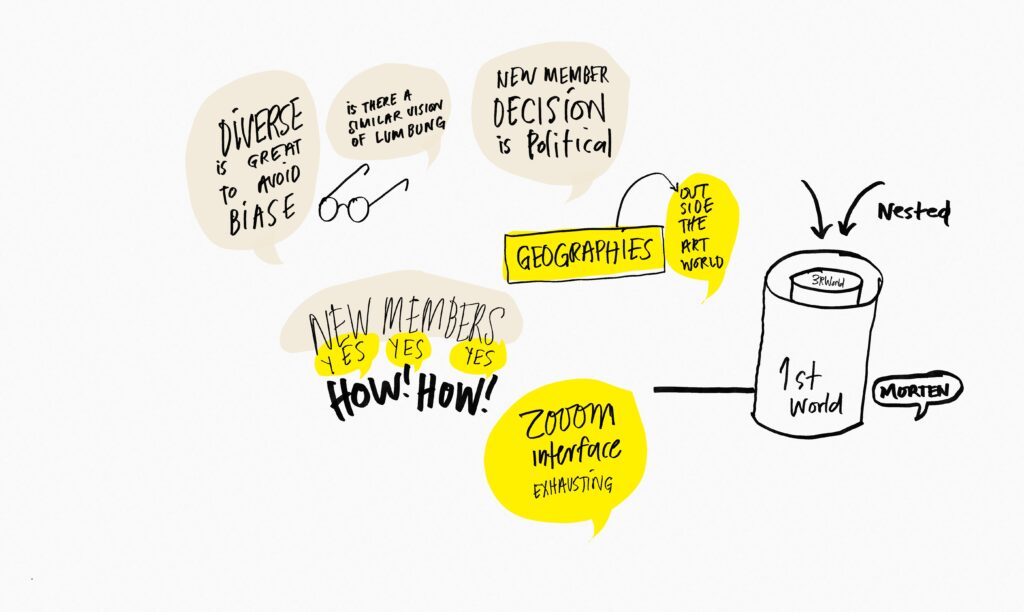 DIVERSE
is GREAT
TO AVOID
BIASE
is THERE A
SIMILAR VISION
OF LUMBUNG
NEW MEMBER
DECISION
is Political
GEOGRAPHIES
OUT
SIDE
THE
ART
WORLD
Nested
3rWorld
1st
World
MORTEN
NEW MEMBERS
YES YES YES
HOW! HOW!
ZOOOM
interface
EXHAUSTING